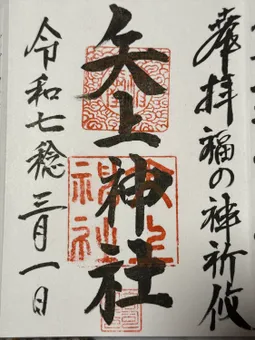 奉拝 福の神祈攸
矢上神社
令和七稔 三月一日